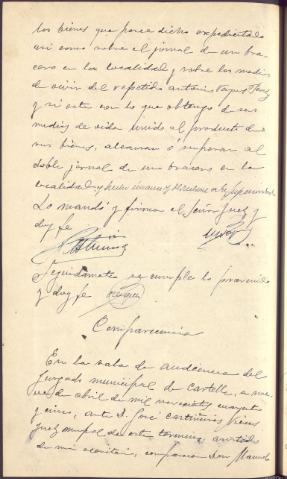 los bienes que posea dicho expedientado
asi como sobre el jornal de un bra-
cero en la localidad y sobre los medios
de vivir del repetido Antonio
y si estos con lo que obtenga de sus
medios de vida unido al producto de
sus bienes, alcanzan ó superan al
doble jornal de un bracero en la
localidad y
Lo mandó y firma el Señor Juez y
doy fe
Seguidamente se cumple lo prevenido
y doy fe
Comparecencia
En la sala de audiencia del
Juzgado municipal de Castells, a nue-
ve de abril de mil novecientos cuarenta
y cinco, ante D. José
Juez mupal de este termino, asistido
de mi Secretario, comparece Don Manuel